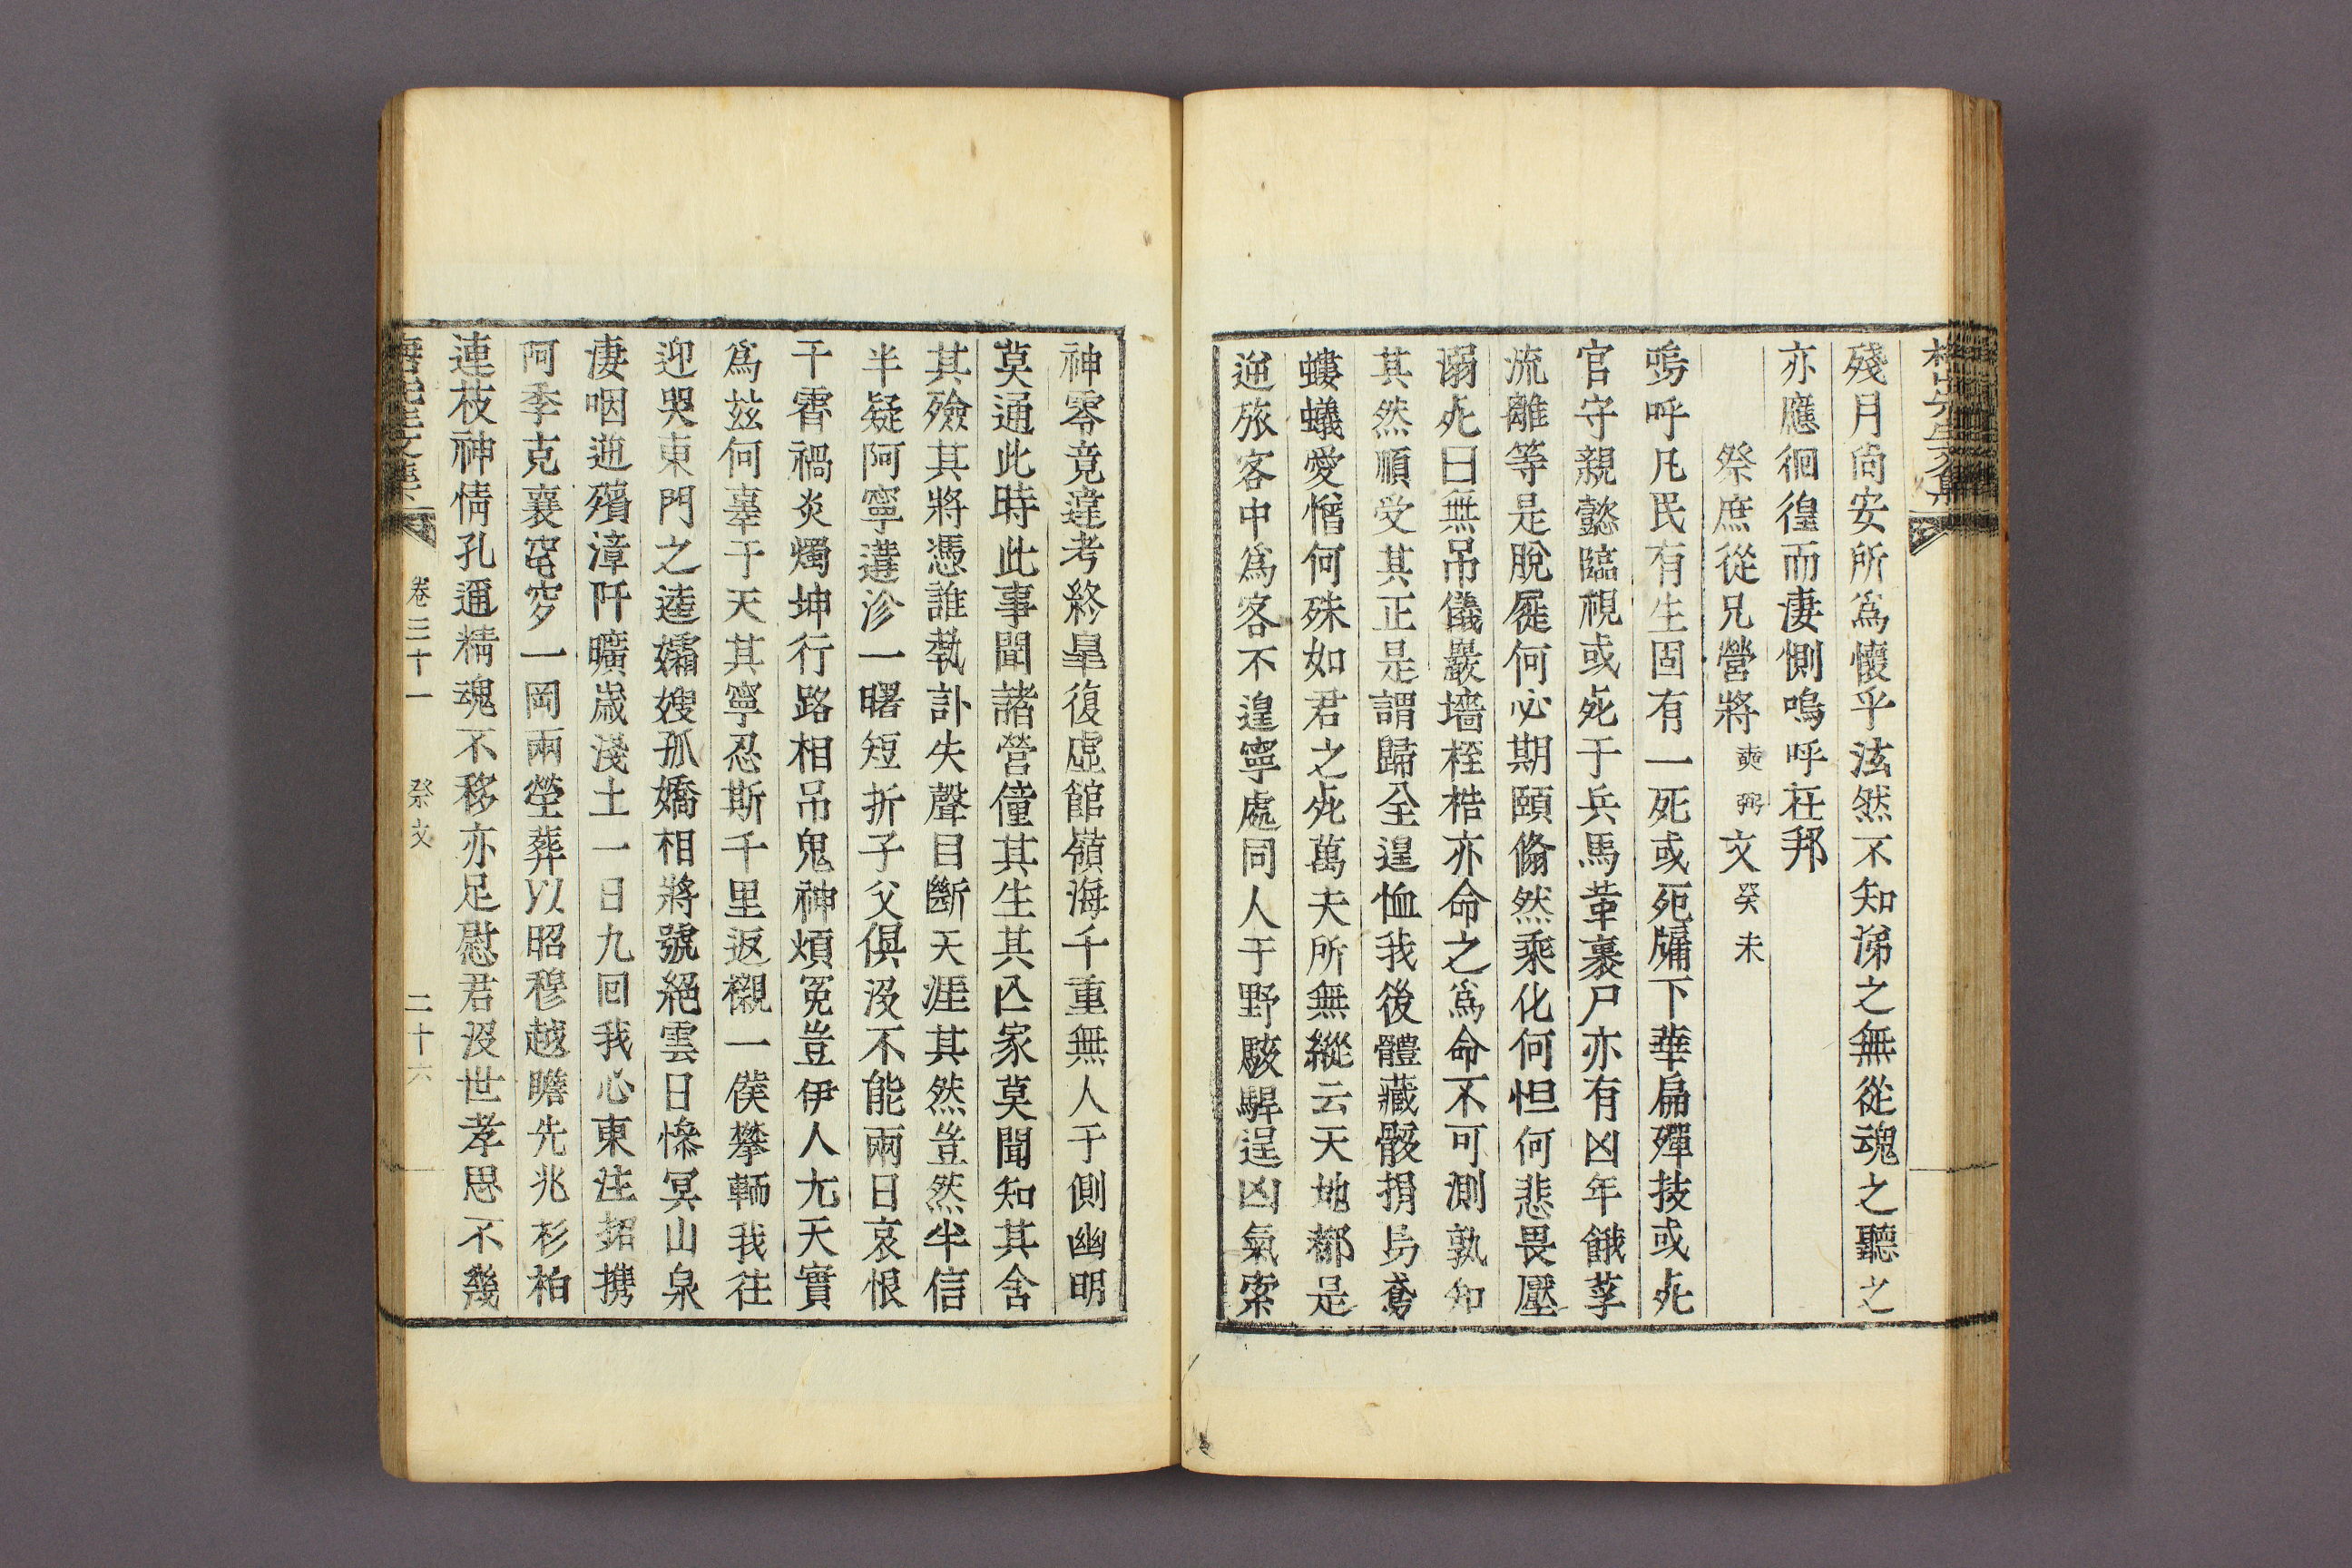 殘月尙安所爲懷乎泫然不知涕之無從魂之聽之
亦應徊徨而悽惻嗚呼在邦
祭庶從兄營將奭弼文癸未
嗚呼凡民有生固有一死或死牖下華扁殫技或死
官守親懿臨視或死于兵馬革裹尸亦有凶年餓莩
流離等是脫屣何必期頤翛然乘化何怛何悲畏壓
溺死曰無吊儀嚴墻桎梏亦命之爲命不可測孰知
其然順受其正是謂歸全遑恤我後體藏骸捐烏鳶
螻蟻愛憎何殊如君之死萬夫所無縱云天地都是
逆旅客中爲客不遑寧處同人于野駭驛逞凶氣索
神零竟違考終皐復虛館嶺海千重無人于側幽明
莫通此時此事聞諸營僮其生其亾家莫聞知其含
其殮其將憑誰執訃失聲目斷天涯其然豈然半信
半疑阿寧遘沴一曙短折子父俱沒不能兩日哀恨
干霄禍炎燭坤行路相吊鬼神煩冤豈伊人尤天實
爲玆何辜于天其寧忍斯千里返櫬一僕攀輀我往
迎哭東門之逵孀嫂孤嬌相將號絕雲日慘冥山泉
凄咽迤殯漳阡曠歲淺土一日九回我心東注招携
阿季克襄窀穸一岡兩塋葬以昭穆越瞻先兆杉柏
連枝神情孔邇精魂不移亦足慰君沒世孝思不幾
卷三十一 祭文 二十六